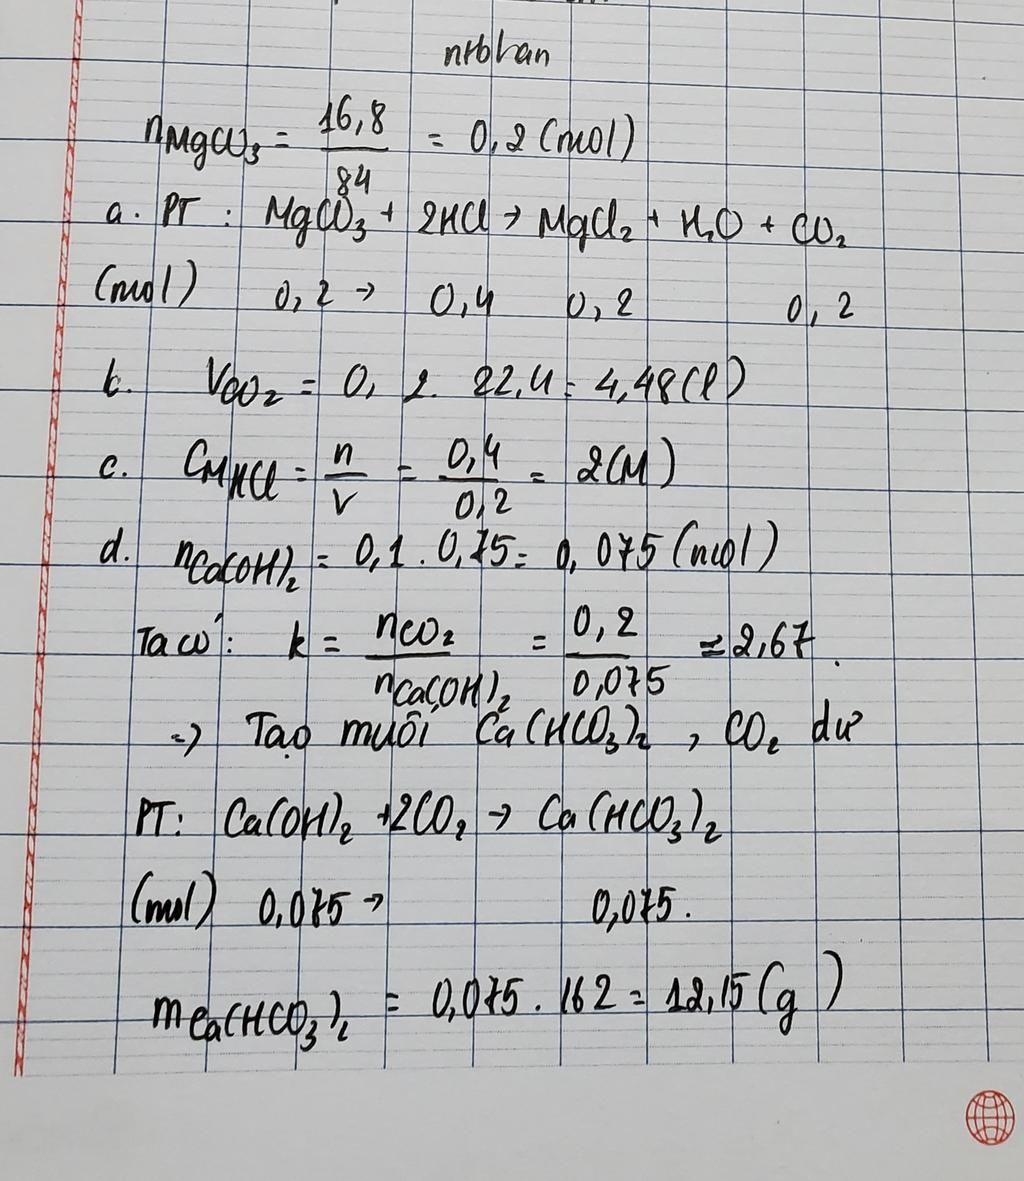 nthhan
nMgCO₃ = 16,8 / 84 = 0,2 (mol)
a. PT : MgCO₃ + 2HCl → MgCl₂ + H₂O + CO₂
(mol) 0,2 → 0,4 0,2 0,2
b. VCO₂ = 0,2. 22,4 = 4,48 (l)
c. CMHCl = n / V = 0,4 / 0,2 = 2(M)
d. nCa(OH)₂ = 0,1 . 0,75 = 0,075 (mol)
Ta có : k = nCO₂ / nCa(OH)₂ = 0,2 / 0,075 = 2,67.
=> Tạo muối Ca(HCO₃)₂ , CO₂ dư
PT: Ca(OH)₂ +2CO₂ → Ca(HCO₃)₂
(mol) 0,075 → 0,075.
mCa(HCO₃)₂ = 0,075 . 162 = 12,15 (g)